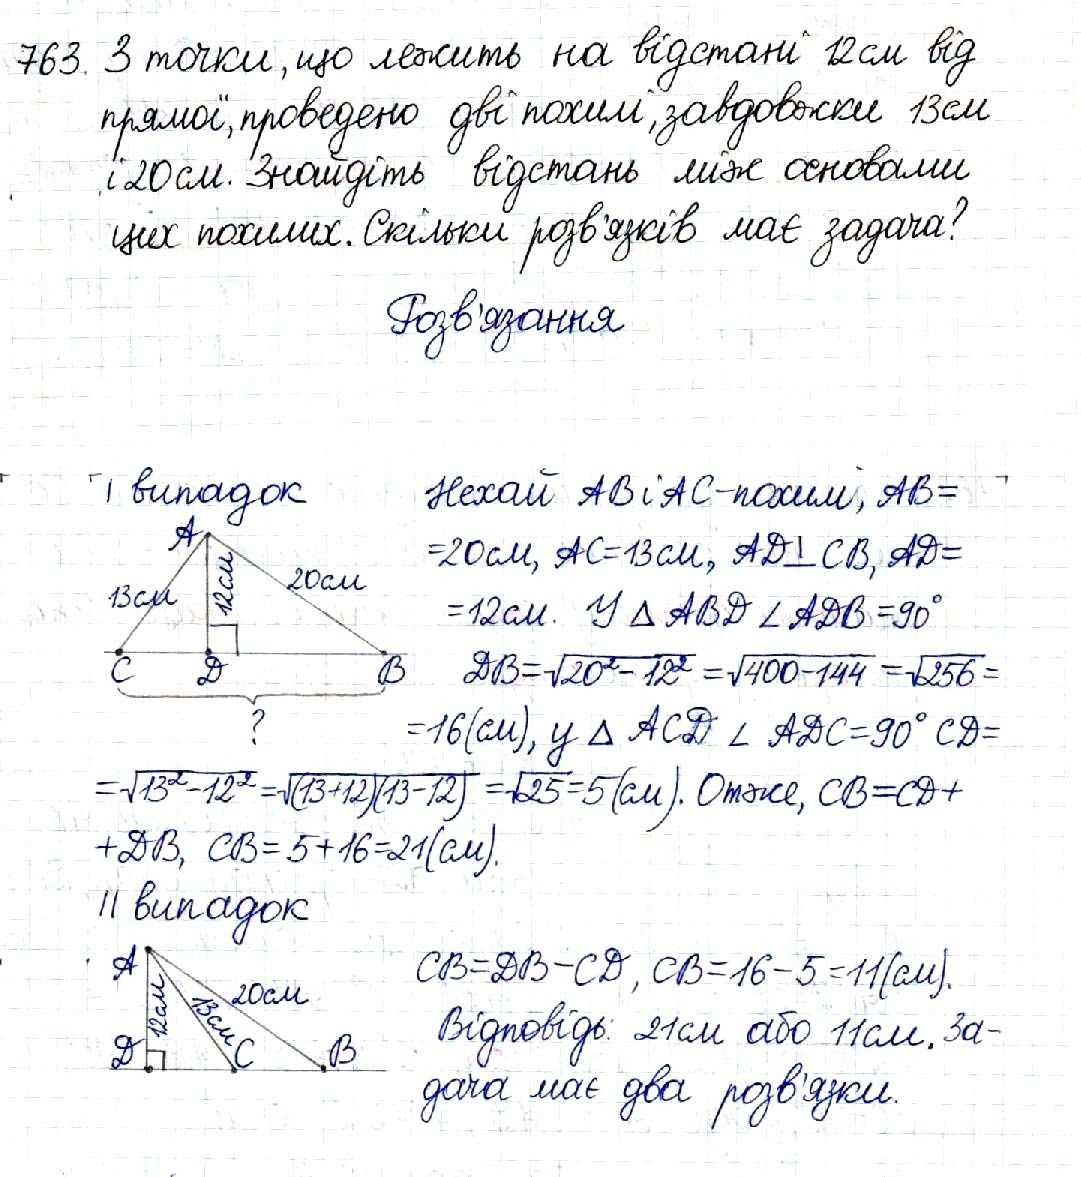 763. З точки, що лежить на відстані 12см від
прямої, проведено дві похилі, завдовжки 13см
і 20см. Знайдіть відстань між основами
цих похилих. Скільки розв'язків має задача?
Розв'язання
I випадок
Нехай AB і AC-похилі, AB=
=20см, AC=13см, AD⊥CB, AD=
=12см. У △ABD ∠ADB=90°
DB=√20²-12²=√400-144=√256=
=16(см), у △ACD ∠ADC=90° CD=
=√13²-12²=√(13+12)(13-12)=√25=5(см). Отже, CB=CD+
+DB, CB=5+16=21(см).
A
13см
12см
20см
C D B
?
II випадок
A
12см
13см
20см
D C B
CB=DB-CD, CB=16-5=11(см).
Відповідь: 21см або 11см. За-
дача має два розв'язки.